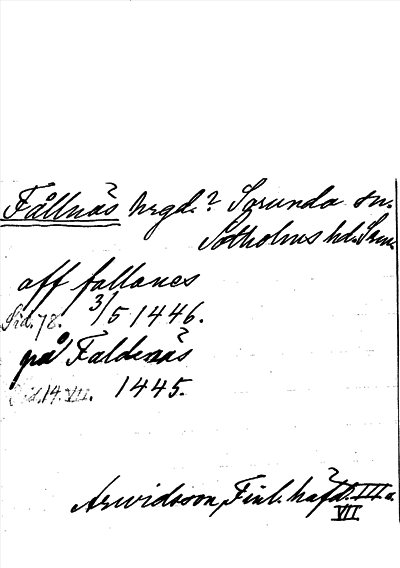 Fållnäs hrgd.? Sorunda sn.
Sotholms hd. Srm.
aff fallanes
Sid. 78. 3/5 1446.
på Faldenäs
Sid. 14. VII. 1445.
Arwidsson, Finl. häfd. III o.
VII